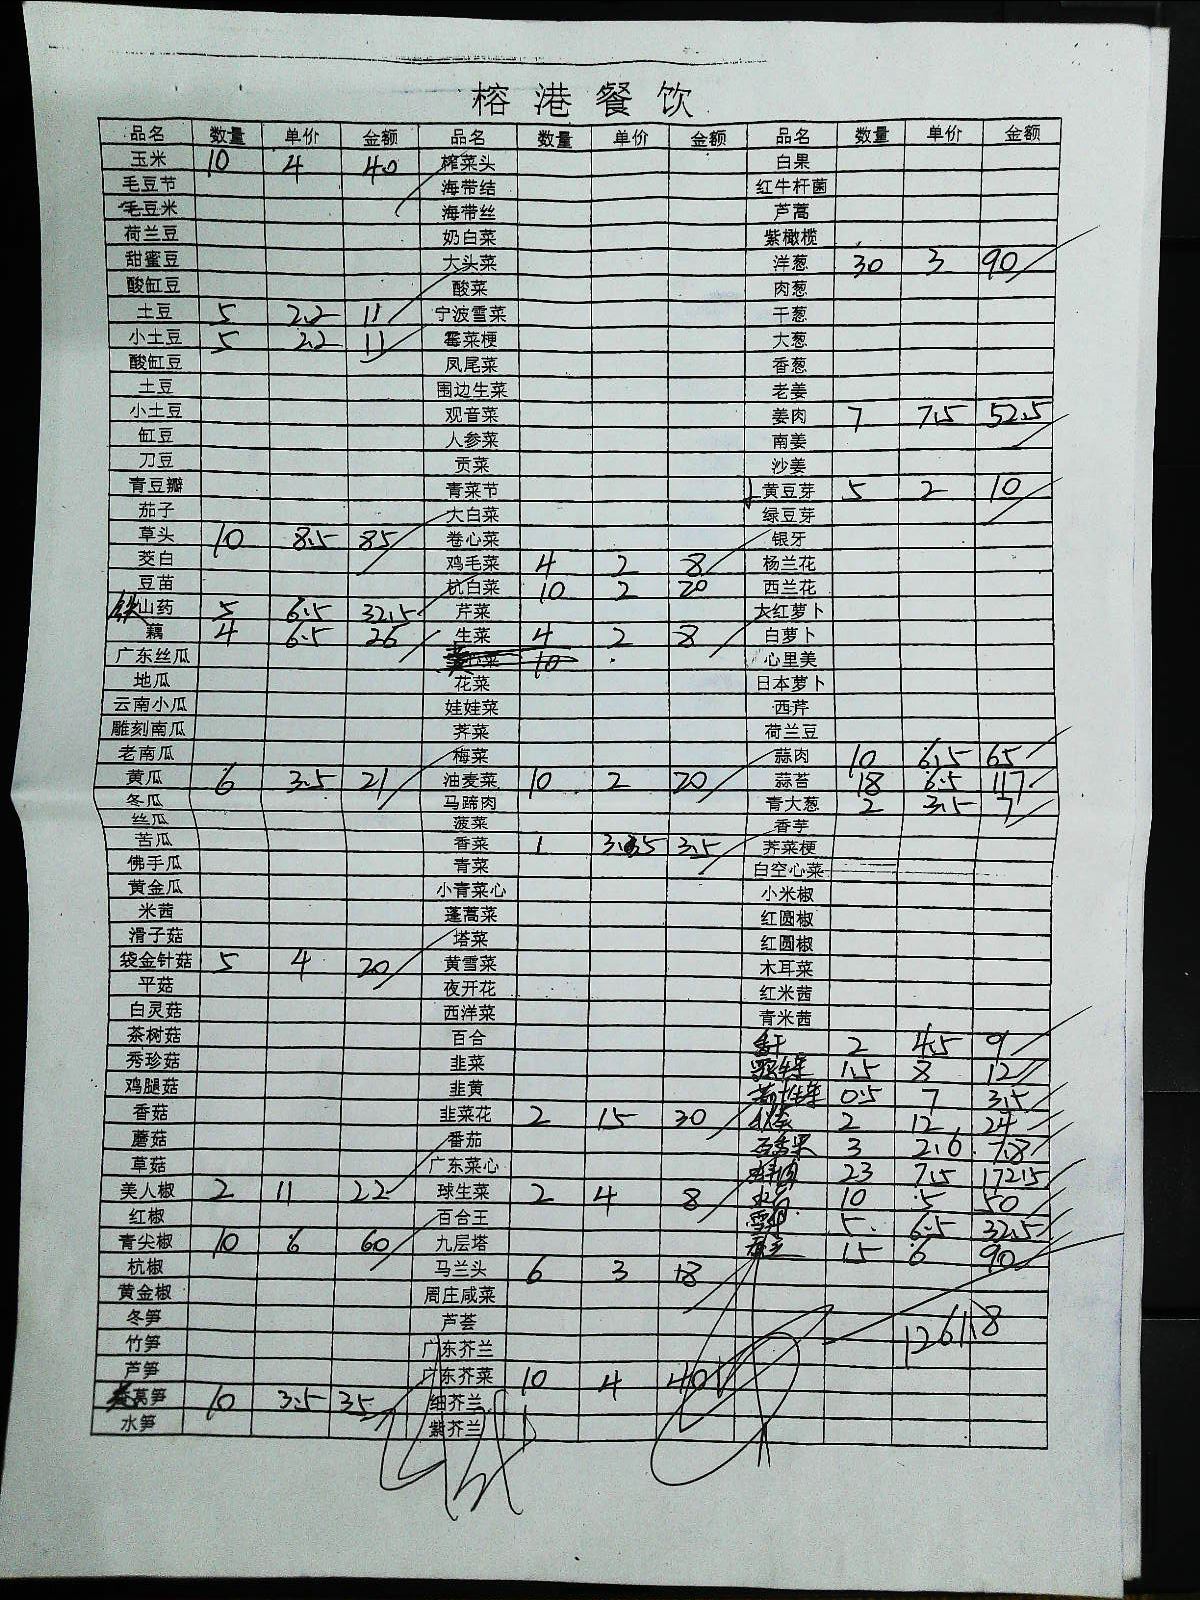 榕港餐饮
品名 数量 单价 金额 品名 数量 单价 金额 品名 数量 单价 金额
玉米 10 4 40 榨菜头 白果
毛豆节 海带结 红牛杆菌
毛豆米 海带丝 芦蒿
荷兰豆 奶白菜 紫橄榄
甜蜜豆 大头菜 洋葱 30 3 90
酸缸豆 酸菜 肉葱
土豆 5 2.2 11 宁波雪菜 干葱
小土豆 5 2.2 11 霉菜梗 大葱
酸缸豆 凤尾菜 香葱
土豆 围边生菜 老姜
小土豆 观音菜 姜肉 7 7.5 52.5
缸豆 人参菜 南姜
刀豆 贡菜 沙姜
青豆瓣 青菜节 黄豆芽 5 2 10
茄子 大白菜 绿豆芽
草头 10 8.5 85 卷心菜 银牙
茭白 鸡毛菜 4 2 8 杨兰花
豆苗 杭白菜 10 2 20 西兰花
铁山药 5 6.5 32.5 芹菜 大红萝卜
藕 4 6.5 26 生菜 4 2 8 白萝卜
广东丝瓜 10 心里美
地瓜 花菜 日本萝卜
云南小瓜 娃娃菜 西芹
雕刻南瓜 荠菜 荷兰豆
老南瓜 梅菜 蒜肉 10 6.5 65
黄瓜 6 3.5 21 油麦菜 10 2 20 蒜苔 18 6.5 117
冬瓜 马蹄肉 青大葱 2 3.5 7
丝瓜 菠菜 香芋
苦瓜 香菜 1 3.5 3.5 荠菜梗
佛手瓜 青菜 白空心菜
黄金瓜 小青菜心 小米椒
米茜 蓬蒿菜 红圆椒
滑子菇 塔菜 红圆椒
袋金针菇 5 4 20 黄雪菜 木耳菜
平菇 夜开花 红米茜
白灵菇 西洋菜 青米茜
茶树菇 百合 2 4.5 9
秀珍菇 韭菜 1.5 8 12
鸡腿菇 韭黄 0.5 7 3.5
香菇 韭菜花 2 15 30 2 12 24
蘑菇 番茄 3 2.6 7.8
草菇 广东菜心 23 7.5 172.5
美人椒 2 11 22 球生菜 2 4 8 10 5 50
红椒 百合王 5 6.5 32.5
青尖椒 10 6 60 九层塔 15 6 90
杭椒 马兰头 6 3 18
黄金椒 周庄咸菜
冬笋 芦荟 1261.8
竹笋 广东芥兰
芦笋 广东芥菜 10 4 40
莴笋 10 3.5 35 细芥兰
水笋 紫芥兰